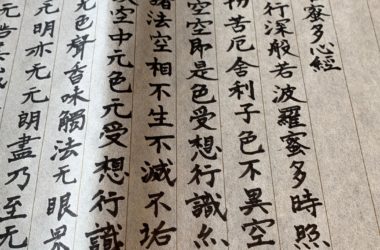 蜜多心經
行深般若波羅蜜多時照
苦厄舍利子色不異空
空空即是色受想行識亦
諸法空相不生不滅不垢
空中无色无受想行識
无色聲香味觸法无眼界
无明亦无无明盡乃至无